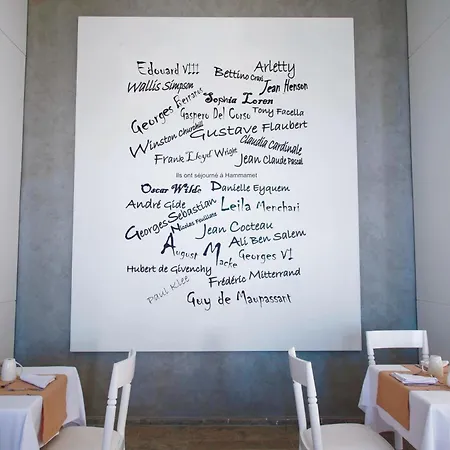 Edouard VIII
Bettino Craxi
Arletty
Wallis Simpson
Jean Henson
Georges Bernanos
Sophia Loren
Gaspero Del Corso
Tony Facella
Winston Churchill
Gustave Flaubert
Claudia Cardinale
Frank Lloyd Wright
Jean Claude Pascal
Ils ont séjourné à Hammamet
Oscar Wilde
Danielle Eyquem
André Gide
Georges Sebastian
Nicolas Feuillatte
Leila Menchari
Jean Cocteau
August Macke
Ali Ben Salem
Georges VI
Hubert de Givenchy
Frédéric Mitterrand
Paul Klee
Guy de Maupassant